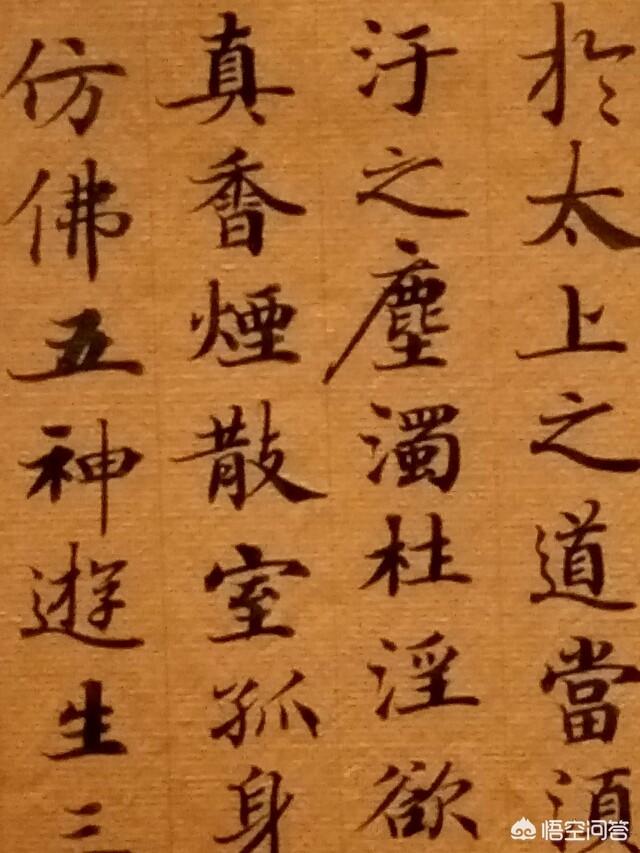 於太上之道當須
汙之塵濁杜淫欲
真香煙散室孤身
仿佛五神遊生三
悟空问答